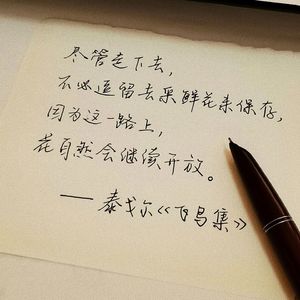 尽管走下去，
不必逗留去采鲜花来保存，
因为这一路上，
花自然会继续开放。
——泰戈尔《飞鸟集》